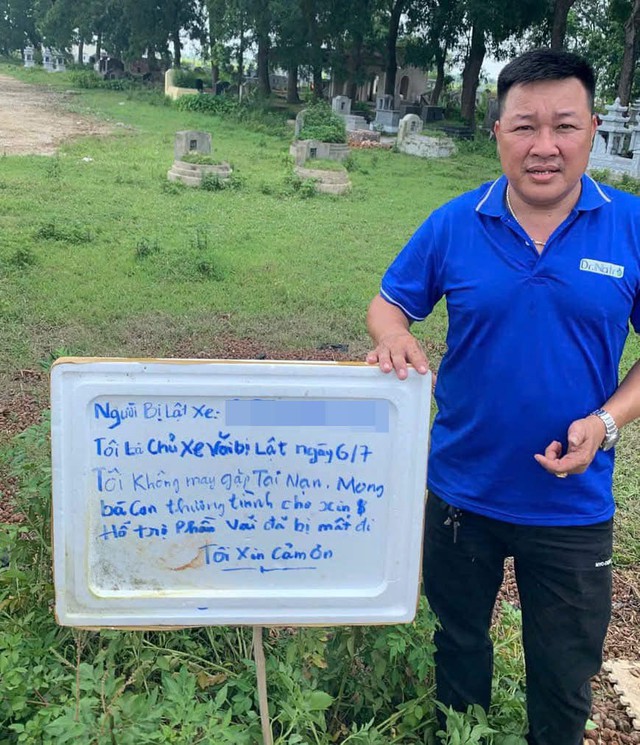 Người Bị Lật Xe:
Tôi Là Chủ Xe Vải bị Lật ngày 6/7
Tôi Không may gặp Tai Nạn. Mong
bà Con thương tình cho xin $
Hỗ trợ Phần Vải đã bị mất đi
Tôi Xin Cảm ơn